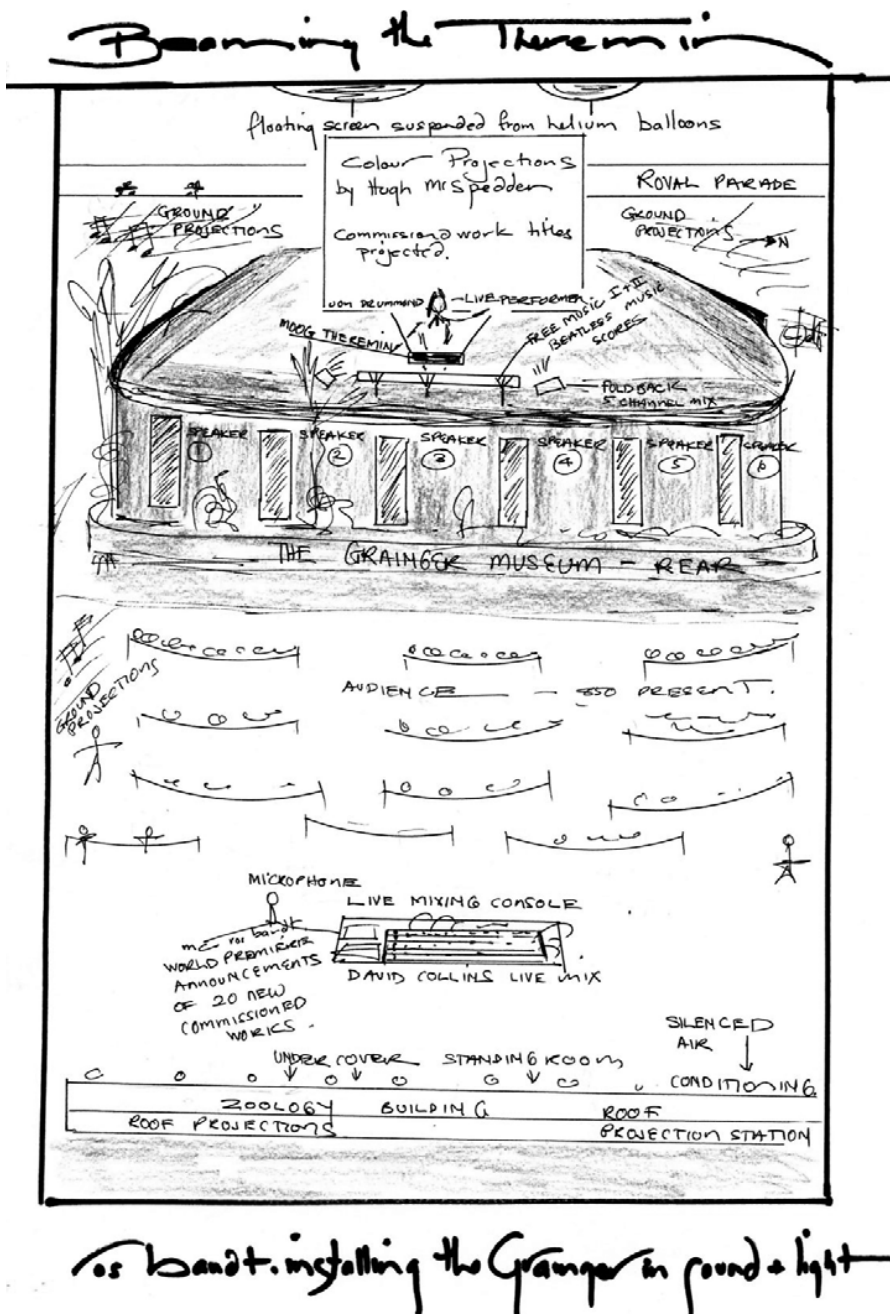 Beaming the Theremin
floating screen suspended from helium balloons
Colour Projections
by Hugh McSpedden
Commissioned work titles
projected.
ROYAL PARADE
GROUND
PROJECTIONS
GROUND
PROJECTIONS
N
JON DRUMMOND
LIVE PERFORMER
MOOG THEREMIN
FREE MUSIC I + II
BEATLESS MUSIC
SCORES
FOLDBACK
5 CHANNEL MIX
SPEAKER
1
SPEAKER
2
SPEAKER
3
SPEAKER
4
SPEAKER
5
SPEAKER
6
THE GRAINGER MUSEUM - REAR
GROUND
PROJECTIONS
AUDIENCE — 850 PRESENT.
MICROPHONE
LIVE MIXING CONSOLE
mc ros bandt
WORLD PREMIERE
ANNOUNCEMENTS
OF 20 NEW
COMMISSIONED
WORKS.
DAVID COLLINS LIVE MIX
SILENCED
AIR
CONDITIONING.
UNDER COVER STANDING ROOM
ZOOLOGY BUILDING
ROOF PROJECTIONS
ROOF
PROJECTION STATION
ros bandt. installing the Grainger in sound + light